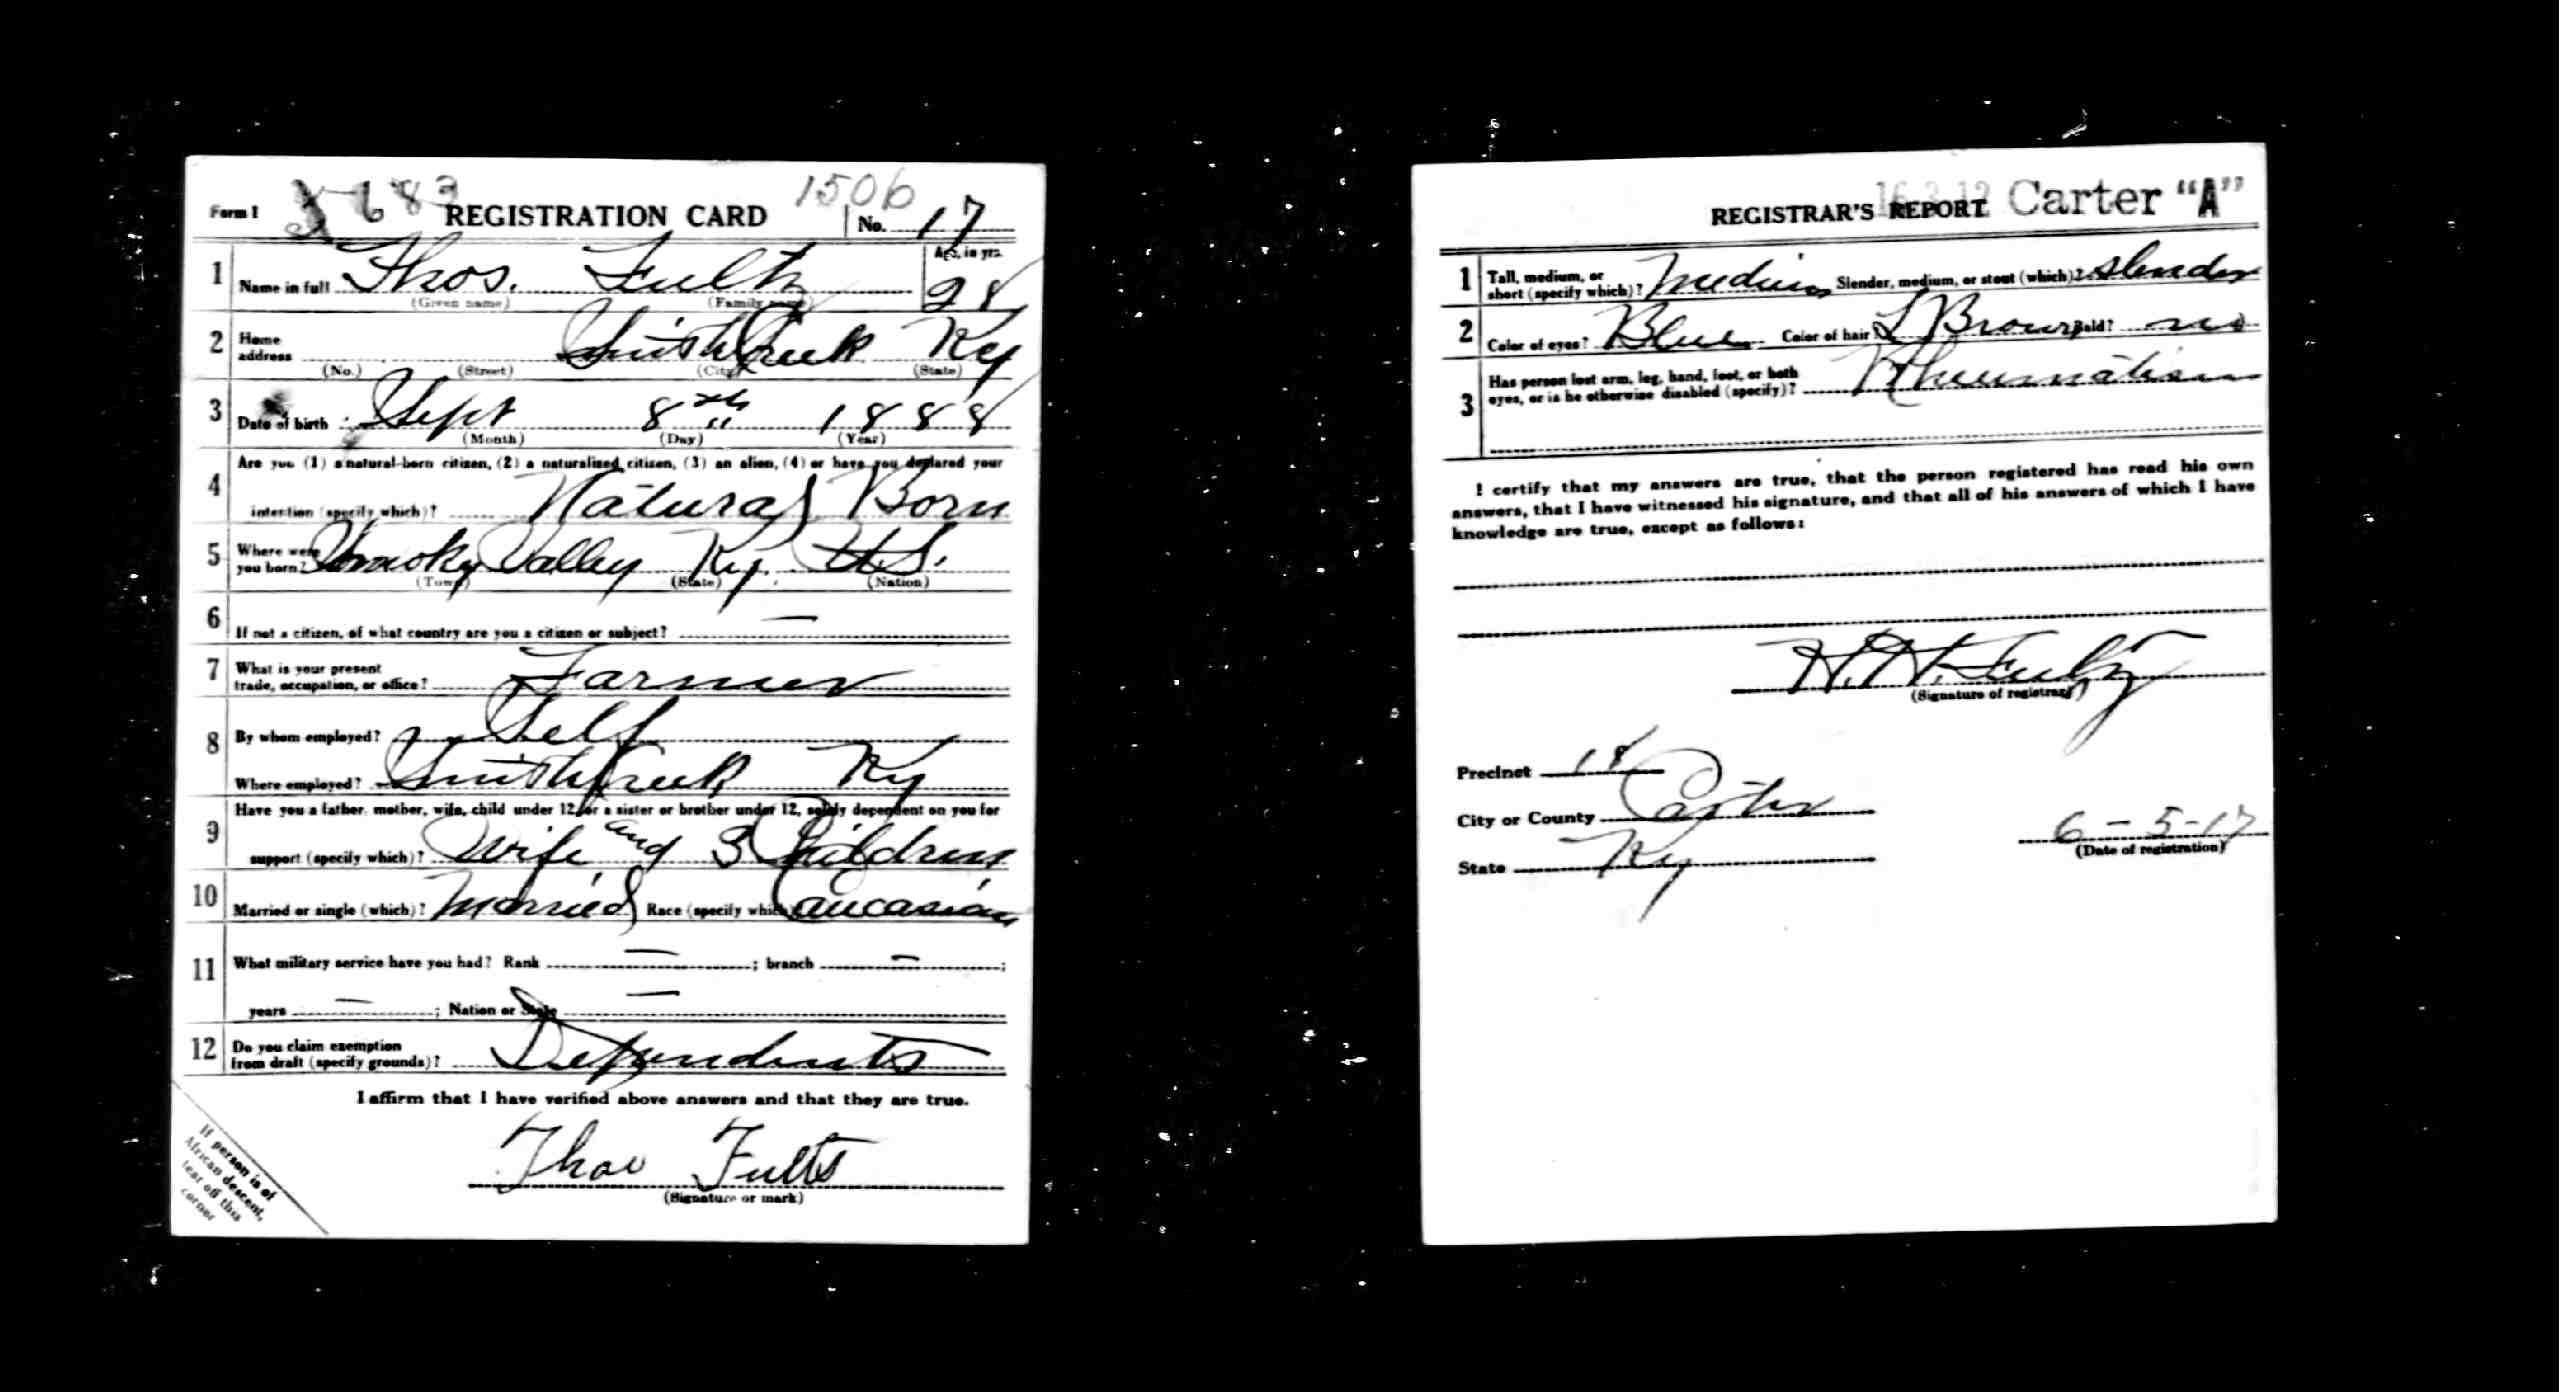 Form 1 REGISTRATION CARD 1506 No. 17
1 Name in full Thos. Fultz Age, in yrs. 28
(Given name) (Family name)
2 Home address Smith Creek Ky
(No.) (Street) (City) (State)
3 Date of birth Sept 8th 1888
(Month) (Day) (Year)
4 Are you (1) a natural-born citizen, (2) a naturalized citizen, (3) an alien, (4) or have you declared your
intention (specify which)? Natural Born
5 Where were you born? Smoky Valley Ky. U.S.
(Town) (State) (Nation)
6 If not a citizen, of what country are you a citizen or subject? —
7 What is your present trade, occupation, or office? Farmer
8 By whom employed? Self
Where employed? Smith Creek Ky
9 Have you a father, mother, wife, child under 12, or a sister or brother under 12, solely dependent on you for
support (specify which)? Wife and 3 Children
10 Married or single (which)? Married Race (specify which)? Caucasian
11 What military service have you had? Rank — ; branch — ;
years — ; Nation or State —
12 Do you claim exemption from draft (specify grounds)? Dependents
I affirm that I have verified above answers and that they are true.
Thos Fults
(Signature or mark)
If person is of
African descent,
tear off this
corner
REGISTRAR'S REPORT Carter "A"
1 Tall, medium, or short (specify which)? Medium Slender, medium, or stout (which)? Slender
2 Color of eyes? Blue Color of hair? L Brown Bald? no
3 Has person lost arm, leg, hand, foot, or both eyes, or is he otherwise disabled (specify)? Rheumatism
I certify that my answers are true, that the person registered has read his own
answers, that I have witnessed his signature, and that all of his answers of which I have
knowledge are true, except as follows:
H. H. Fultz
(Signature of registrar)
Precinct 18
City or County Carter
State Ky
6-5-17
(Date of registration)